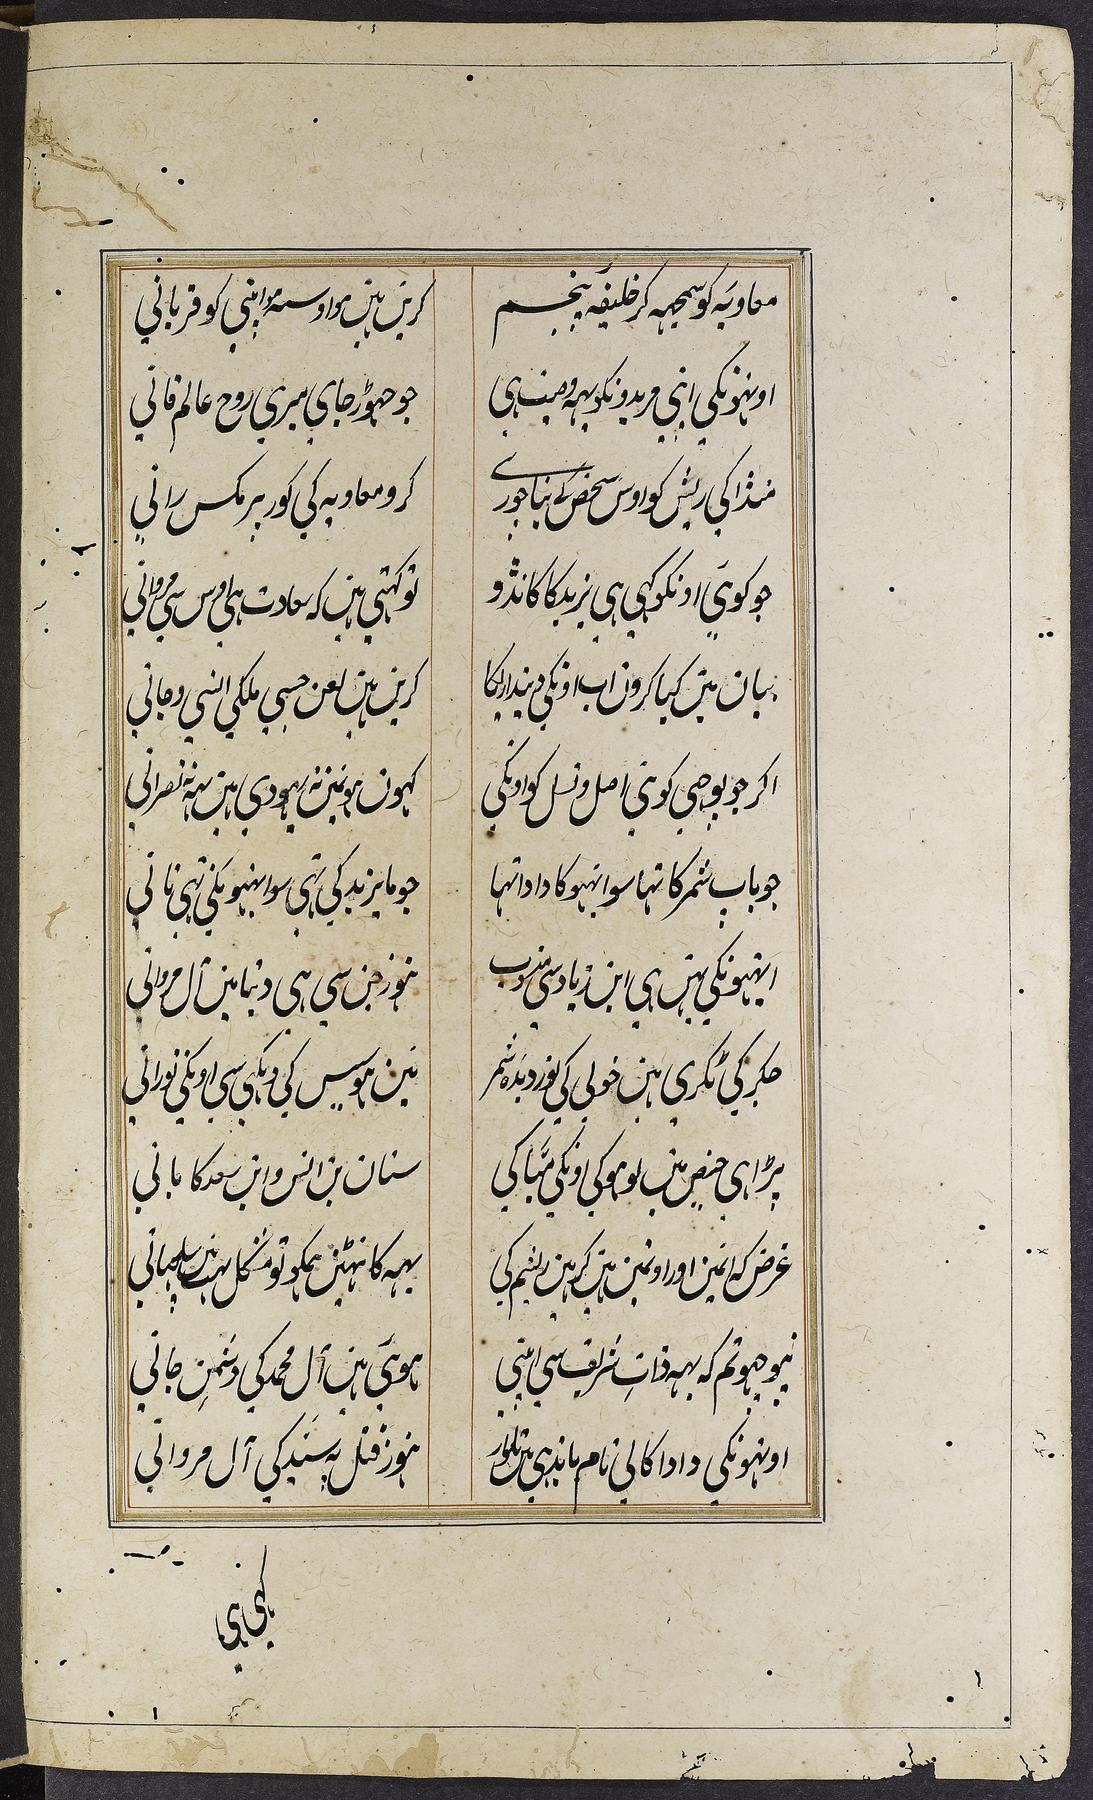 معاویہ کو سمجہہ کر خلیفہ پنجم
کرین ہین اپنی کو قربانی
اونہونکی اپنی مریدونکو یہہ وصیت ہی
جو چہوڑ جای میری روح عالم فانی
منڈا کی ریش کو اوس شخص کے بنا چوری
کرو معاویہ کی کور پر مکس رانی
جو کویی اونکو کہی ہی یزید کا کانڈو
تو کہتی ہین کہ سعادت ہی اوس سی مروانی
بیان مین کیا کرون اب اونکی دینداریکا
کرین ہین لعن جسی ملکی انسی و جانی
اکر جو پوچہی کویی اصل و نسل کو اونکی
کہون مومنین نہ یہودی ہین یہہ نہ نصرانی
جو باپ شمر کا تہا سو انہو کا دادا تہا
جو ما یزید کی تہی سو انہونکی تہی نانی
انہونکی بہن ہی ابن زیاد سی منسوب
ہنوز جن سی ہی دنیا مین آل مروانی
جکر کی ٹکری ہین خولی کی نور دیدہ شمر
ہین کی اونکی نورانی
پڑا ہی حیض مین لوہو کی اونکی
سنان بن انس و ابن سعد کا بانی
غرض کہ انمین اور اونمین ہین کرہین ریشم کی
یہہ کا نہین ہمکو تو مشکل سلجہانی
نپوچہو تم کہ یہہ ذات شریف سی اپنی
ہویی ہین آل محمد کی دشمن جانی
اونہونکی دادا کا لی نام باندہی ہین تلوار
ہنوز قتل پہ سید کی آل مروانی
کہی ہی